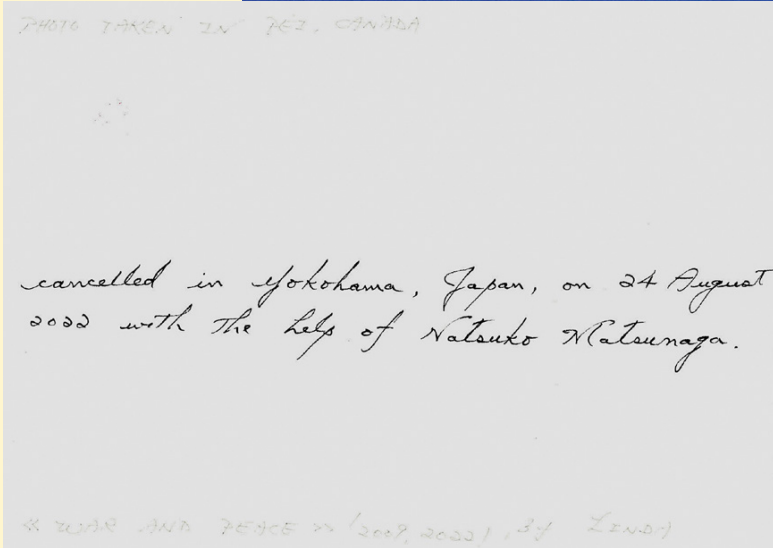 PHOTO TAKEN IN PEI, CANADA
cancelled in Yokohama, Japan, on 24 August
2022 with the help of Natsuko Matsunaga.
« WAR AND PEACE » (2009, 2022), BY LINDA